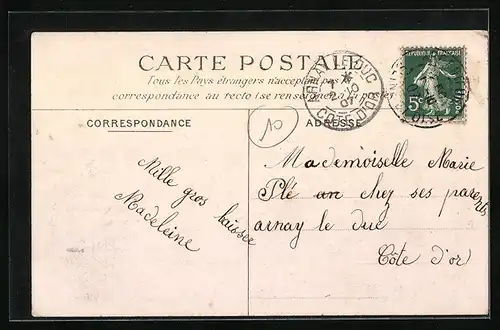 CARTE POSTALE
Tous les Pays étrangers n'acceptent pas la
correspondance au recto (se renseigner à la poste)
CORRESPONDANCE
ADRESSE
ARNAY-LE-DUC
COTE-D'OR
REPUBLIQUE FRANCAISE
5c
10
Mille gros baisers
Madeleine
Mademoiselle Marie
Plé an chez ses parents
arnay le duc
Côte d'or